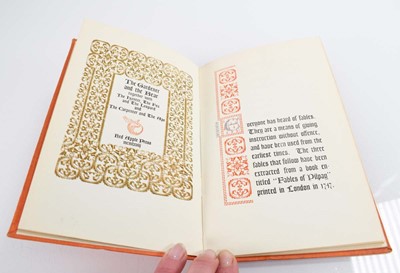 The Gardener
and the Bear
together with
The Falconer, The Fox
and The Leopard
and
The Carpenter and The Ape
Red Apple Press
Everyone has heard of fables.
They are a means of giving
instruction without offence,
and have been used from the
earliest times. The three
fables that follow have been
extracted from a book en-
titled "Fables of Pilpay"
printed in London in 1747.